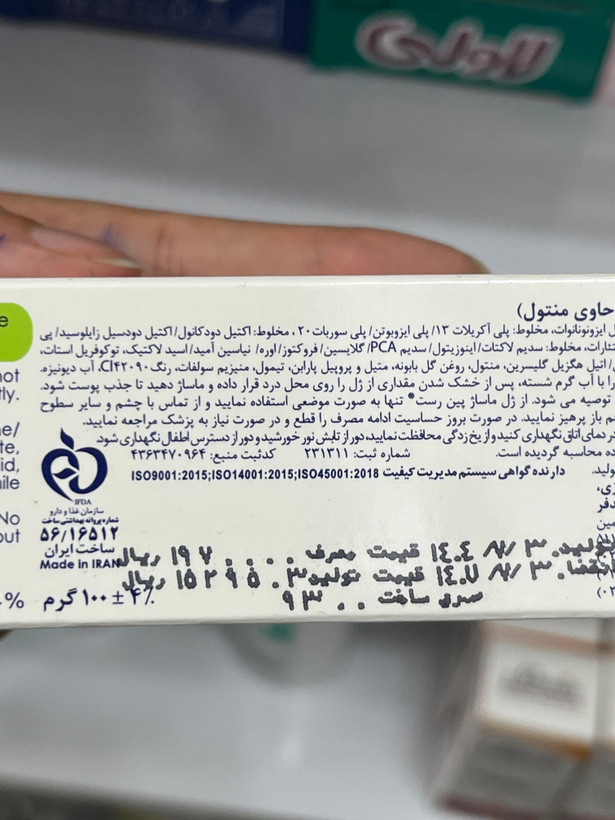 لاولی
حاوی منتول)
ایزونونانوات، مخلوط: پلی آکریلات ۱۳/ پلی ایزوبوتن/ پلی سوربات ۲۰، مخلوط: اکتیل دودکانول/ اکتیل دودسیل زایلوسید/ پی
مخلوط: سدیم لاکتات/ اینوزیتول/ سدیم PCA/ گلایسین/ فروکتوز/ اوره/ نیاسین آمید/ اسید لاکتیک، توکوفریل استات،
اتیل هگزیل گلیسرین، منتول، روغن گل بابونه، متیل و پروپیل پارابن، تیمول، منیزیم سولفات، رنگ CI۴۲۰۹۰، آب دیونیزه.
با آب گرم شسته، پس از خشک شدن مقداری از ژل را روی محل درد قرار داده و ماساژ دهید تا جذب پوست شود.
توصیه می شود. از ژل ماساژ پین رست® تنها به صورت موضعی استفاده نمایید و از تماس با چشم و سایر سطوح
باز پرهیز نمایید. در صورت بروز حساسیت ادامه مصرف را قطع و در صورت نیاز به پزشک مراجعه نمایید.
دمای اتاق نگهداری کنید و از یخ زدگی محافظت نمایید، دور از تابش نور خورشید و دور از دسترس اطفال نگهداری شود
محاسبه گردیده است. شماره ثبت: ۲۳۱۳۱۱ کدثبت منبع: ۴۳۶۳۴۷۰۹۶۴
دارنده گواهی سیستم مدیریت کیفیت ISO9001:2015;ISO14001:2015;ISO45001:2018
IFDA
سازمان غذا و دارو
شماره پروانه بهداشتی ساخت
۵۶/۱۶۵۱۲
ساخت ایران
Made in IRAN
۱۰۰ ± ۴٪ گرم
قیمت مصرف ۱۹۷۰۰۰۰ ریال
قیمت تولید ۱۵۲۹۵۰۳ ریال
سری ساخت ۹۳۰۰
No